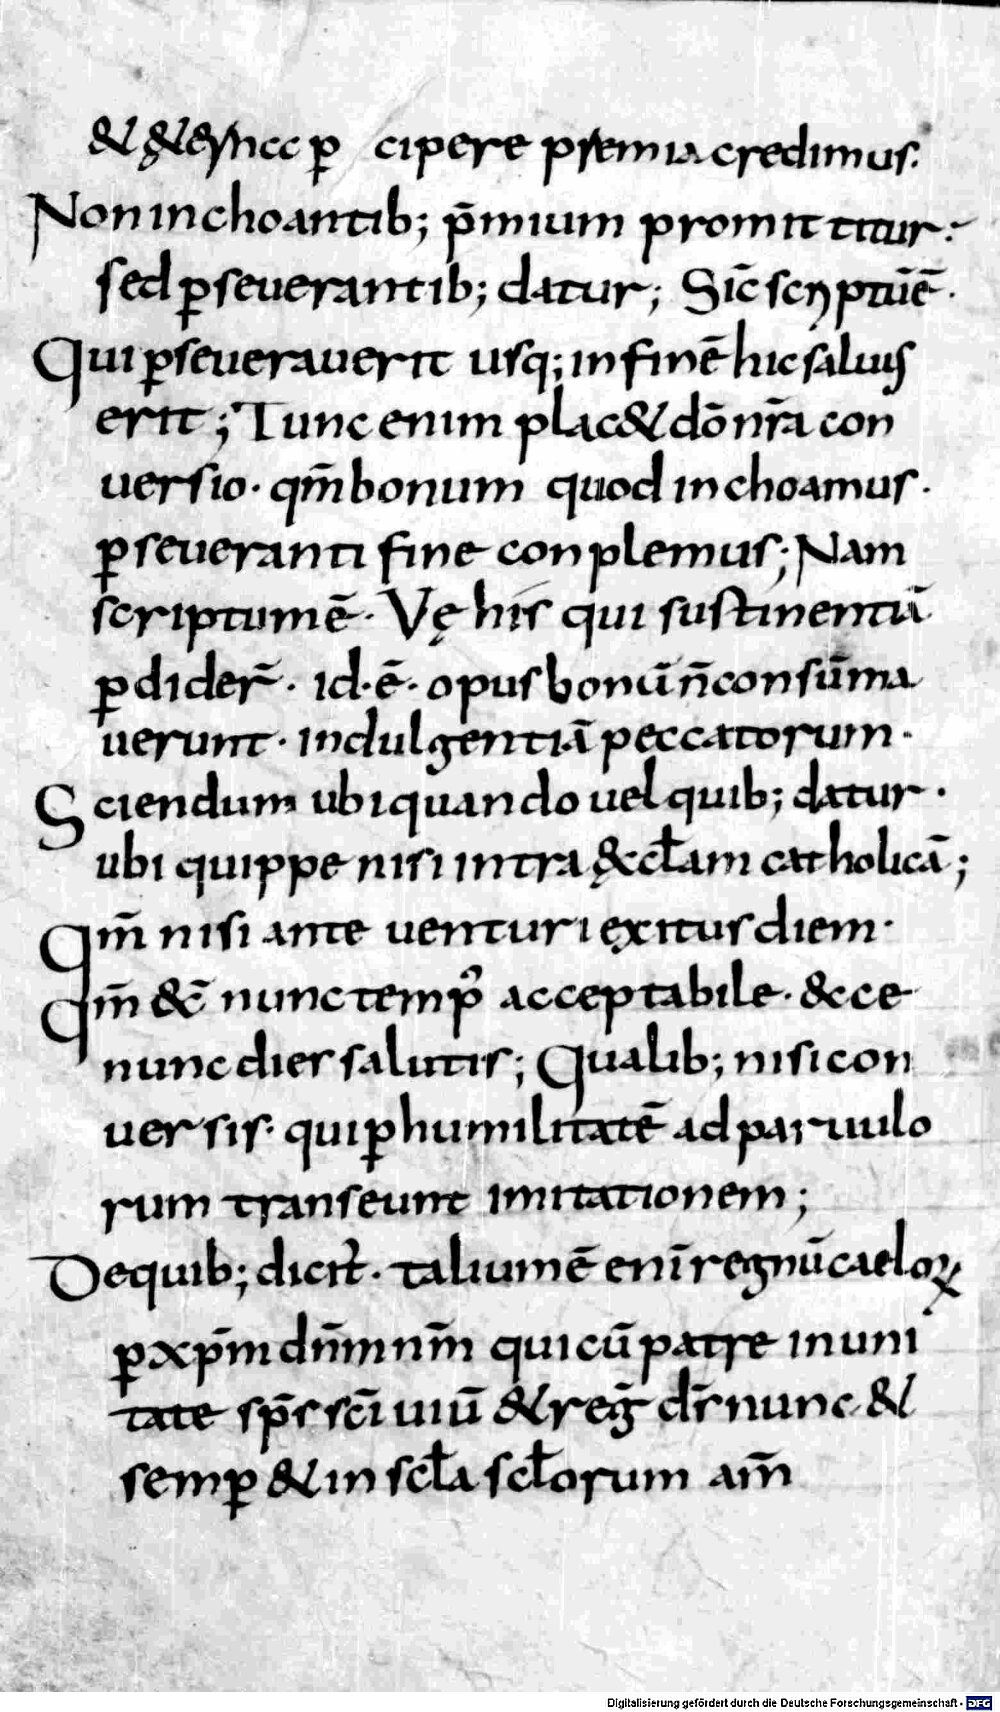 & p cipere premia credimus.
Non inchoantib; p̄mium promittitur.
sed ꝑseuerantib; datur; Sic̄ scriptū ē.
Qui ꝑseuerauerit usq; in finē hic saluus
erit; Tunc enim plac& dō nr̄a con
uersio. qm̄ bonum quod inchoamus.
ꝑseueranti fine conplemus; Nam
scriptum ē. Vę his qui sustinentiā
ꝑdider̄. id. ē. opus bonū n̄ consūma
uerunt. indulgentiā peccatorum.
Sciendum ubi quando uel quib; datur.
ubi quippe nisi intra &cłam catholicā;
Qm̄ nisi ante uenturi exitus diem.
Qm̄ &c̄ nunc temp̄ acceptabile. &cce
nunc dies salutis; Qualib; nisi con
uersis. qui ꝑ humilitatē ad paruulo
rum transeunt imitationem;
De quib; dicit̄. talium ē enī regnū caeloꝝ
ꝑ xp̄m dn̄m nr̄m qui cū patre in uni
tate sp̄s sc̄i uiū & reḡ ds̄ nunc &
semꝑ & in scła scłorum am̄
Digitalisierung gefördert durch die Deutsche Forschungsgemeinschaft - DFG